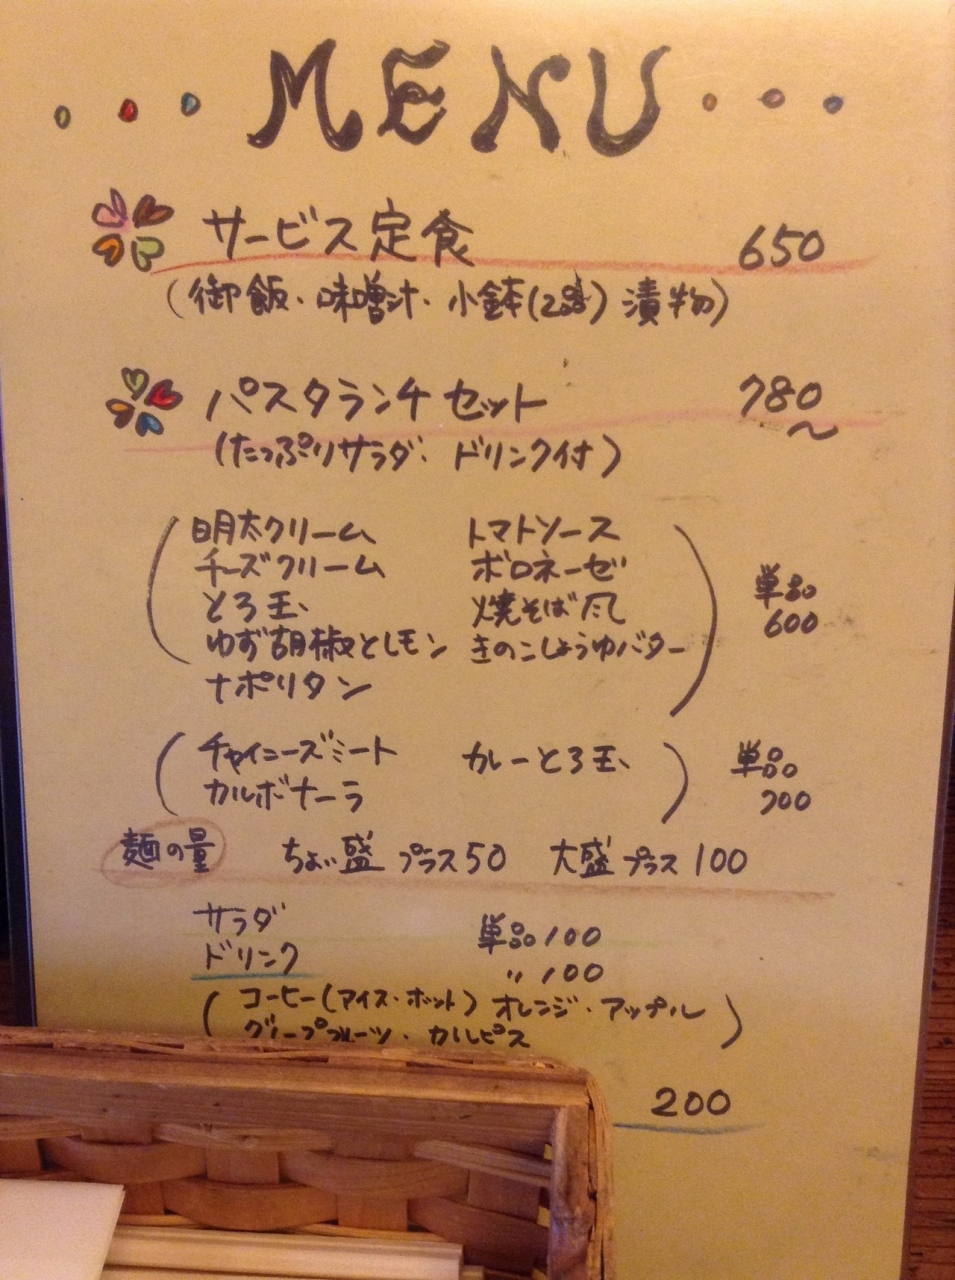 MENU
サービス定食 650
(御飯・味噌汁・小鉢(2品) 漬物)
パスタランチセット 780〜
(たっぷりサラダ・ドリンク付)
明太クリーム トマトソース
チーズクリーム ボロネーゼ
とろ玉 焼そば風 単品
ゆず胡椒とレモン きのこしょうゆバター 600
ナポリタン
チャイニーズミート カレーとろ玉 単品
カルボナーラ 700
麺の量 ちょい盛プラス50 大盛プラス100
サラダ 単品100
ドリンク 〃100
(コーヒー(アイス・ホット) オレンジ・アップル
グレープフルーツ・カルピス)
200